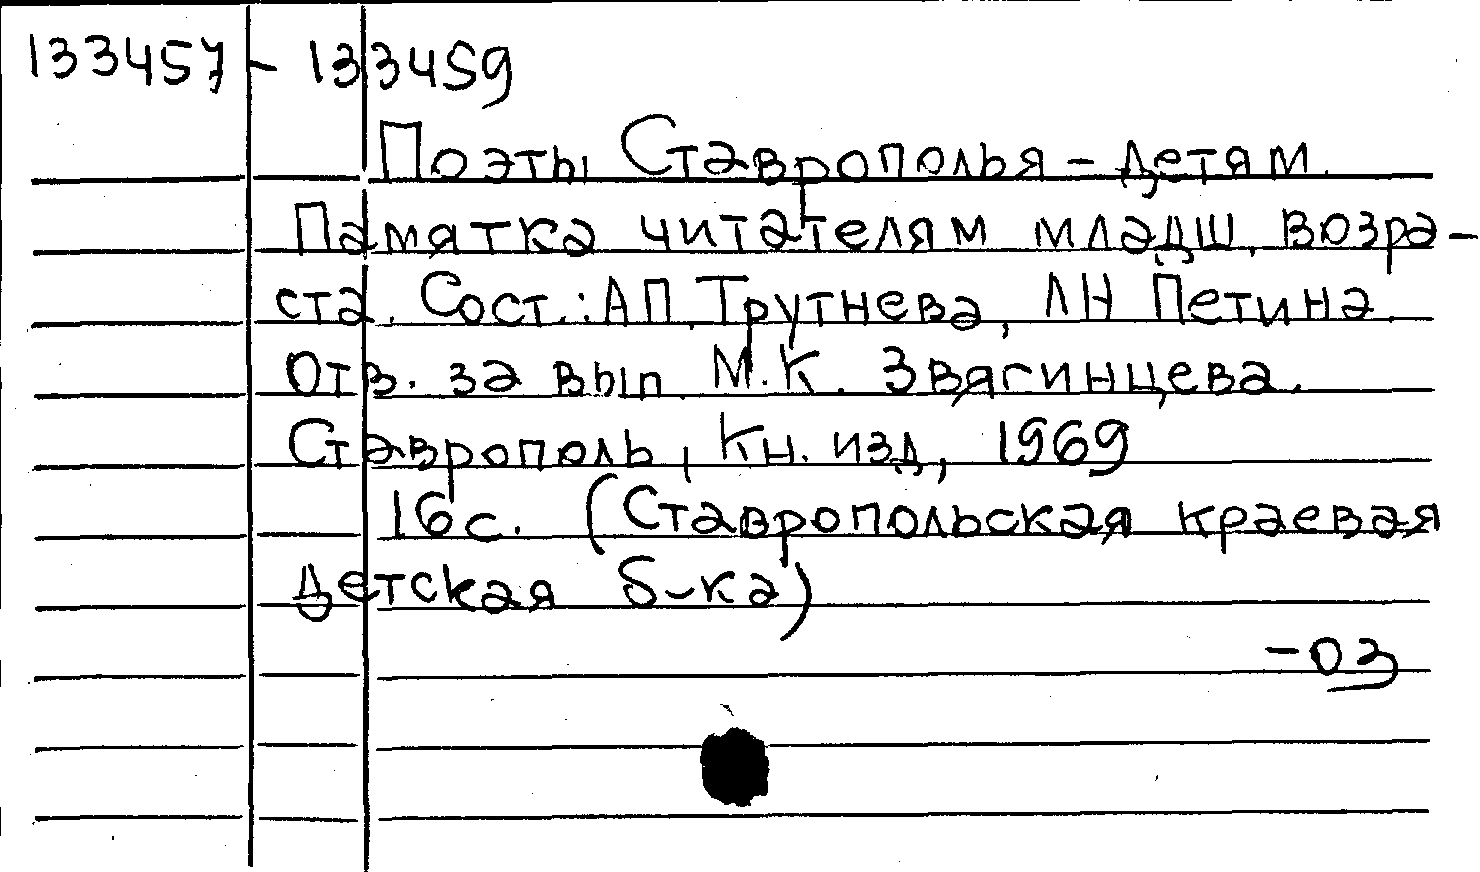 133457 - 133459
Поэты Ставрополья - детям.
Памятка читателям младш. возра-
ста. Сост.: А.П. Трутнева, Л Н Петина.
Отв. за вып. М.К. Звягинцева.
Ставрополь, Кн. изд, 1969
16 с. (Ставропольская краевая
детская б-ка)
-03